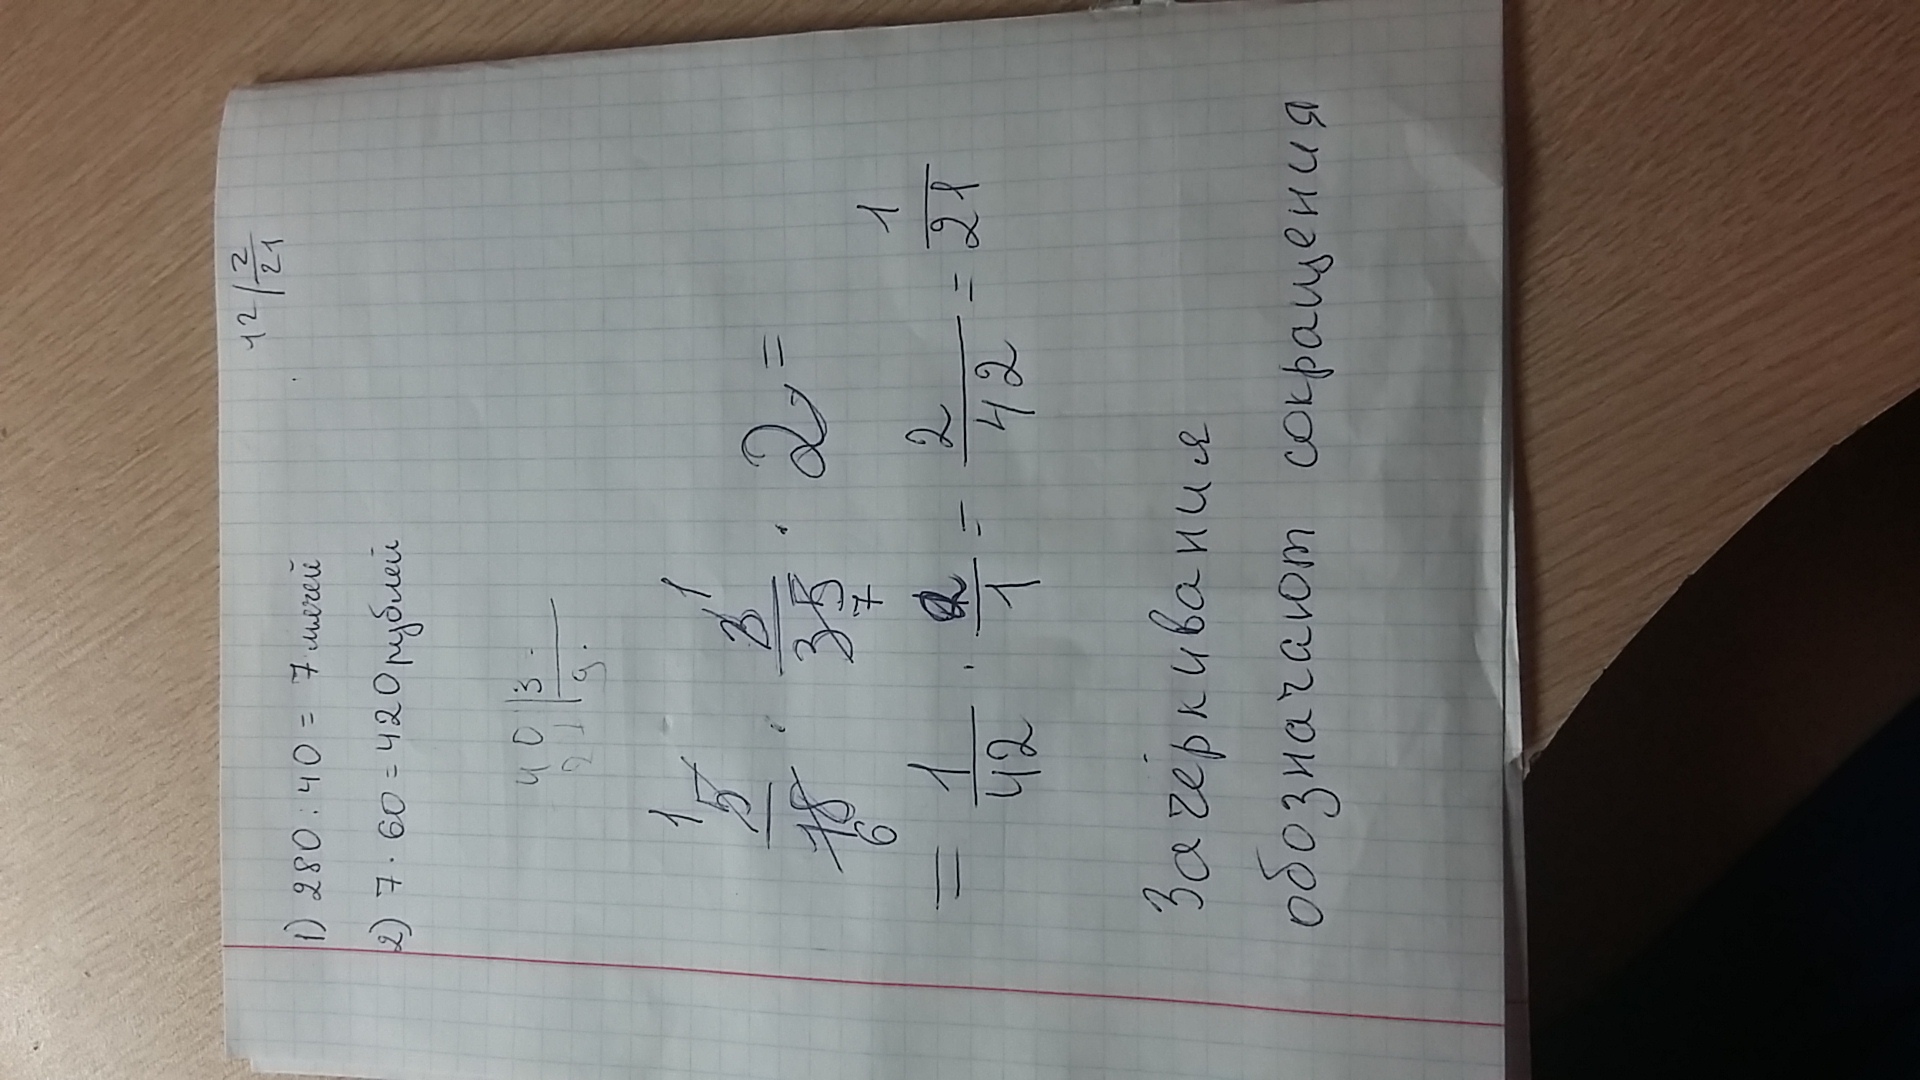 1) 280 : 40 = 7 мячей
42 | 2
21
2) 7 · 60 = 420 рублей
40 | 3
9
1 1
5/18 · 3/35 · 2 =
6 7
= 1/42 · 2/1 = 2/42 = 1/21
Зачёркивания
обозначают сокращения